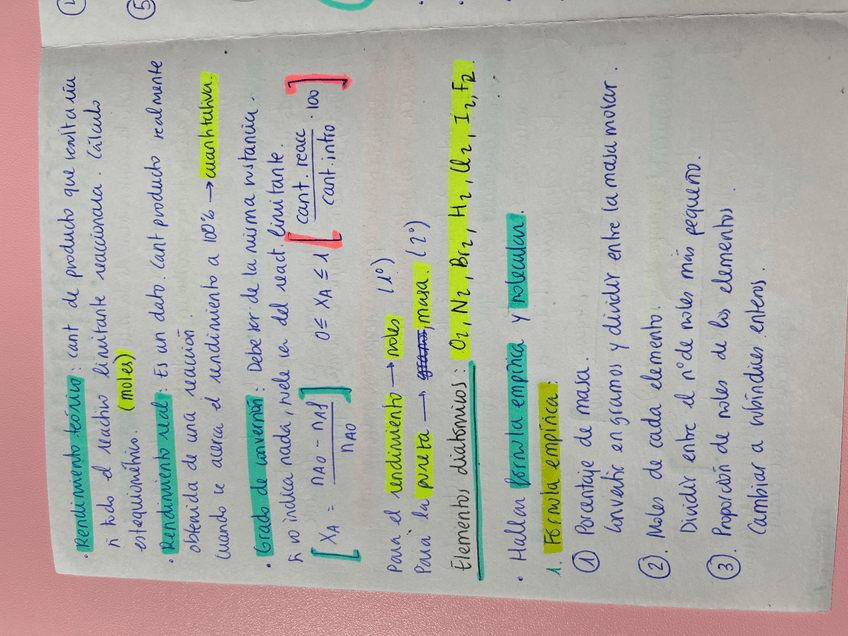 • Rendimiento teórico: cant de producto que resultaría
si todo el reactivo limitante reaccionara. Cálculo
estequiométrico. (moles)
• Rendimiento real: Es un dato. Cant producto realmente
obtenida de una reacción.
Cuando se acerca el rendimiento a 100% → cuantitativa.
• Grado de conversión: Debe ser de la misma sustancia.
Si no indica nada, suele ser del react. limitante.
[XA = (nA0 - nAf) / nA0] 0 ≤ XA ≤ 1 [cant. reacc / cant. intro · 100]
Para el rendimiento → moles (1º)
Para la pureza → masa. (2º)
Elementos diatómicos: O2, N2, Br2, H2, Cl2, I2, F2.
• Hallar fórmula empírica y molecular.
1. Fórmula empírica:
① Porcentaje de masa.
Convertir en gramos y dividir entre la masa molar.
②. Moles de cada elemento.
Dividir entre el nº de moles más pequeño.
③. Proporción de moles de los elementos.
Cambiar a subíndices enteros.
④
⑤